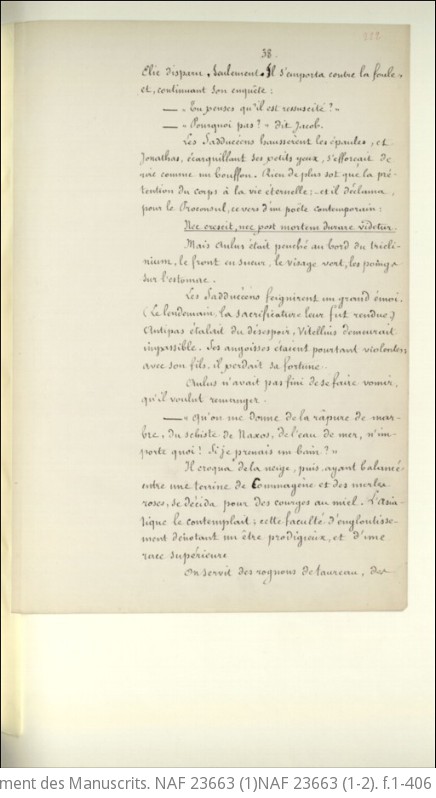 222
38.
Elie disparu. Seulement. Il s'emporta contre la foule,
et, continuant son enquête :
— « Tu penses qu'il est ressuscité ? »
— « Pourquoi pas ? » dit Jacob.
Les Sadducéens haussèrent les épaules, et
Jonathas, écarquillant ses petits yeux, s'efforçait de
rire comme un bouffon. Rien de plus sot que la pré-
tention du corps à la vie éternelle ; et il déclama,
pour le Proconsul, ce vers d'un poète contemporain :
Nec crescit, nec post mortem durare videtur.
Mais Aulus était penché au bord du tricli-
nium, le front en sueur, le visage vert, les poings
sur l'estomac.
Les Sadducéens feignirent un grand émoi.
(Le lendemain, la sacrificature leur fut rendue.)
Antipas étalait du désespoir, Vitellius demeurait
impassible. Ses angoisses étaient pourtant violentes
avec son fils, il perdait sa fortune.
Aulus n'avait pas fini de se faire vomir,
qu'il voulut remanger.
— « Qu'on me donne de la râpure de mar-
bre, du schiste de Naxos, de l'eau de mer, n'im-
porte quoi ! Si je prenais un bain ? »
Il croqua de la neige, puis, ayant balancé
entre une terrine de Commagène et des merles
roses, se décida pour des courges au miel. L'Asia-
tique le contemplait ; cette faculté d'engloutisse-
ment dénotant un être prodigieux, et d'une
race supérieure
On servit des rognons de taureau, des
ment des Manuscrits. NAF 23663 (1)NAF 23663 (1-2). f.1-406